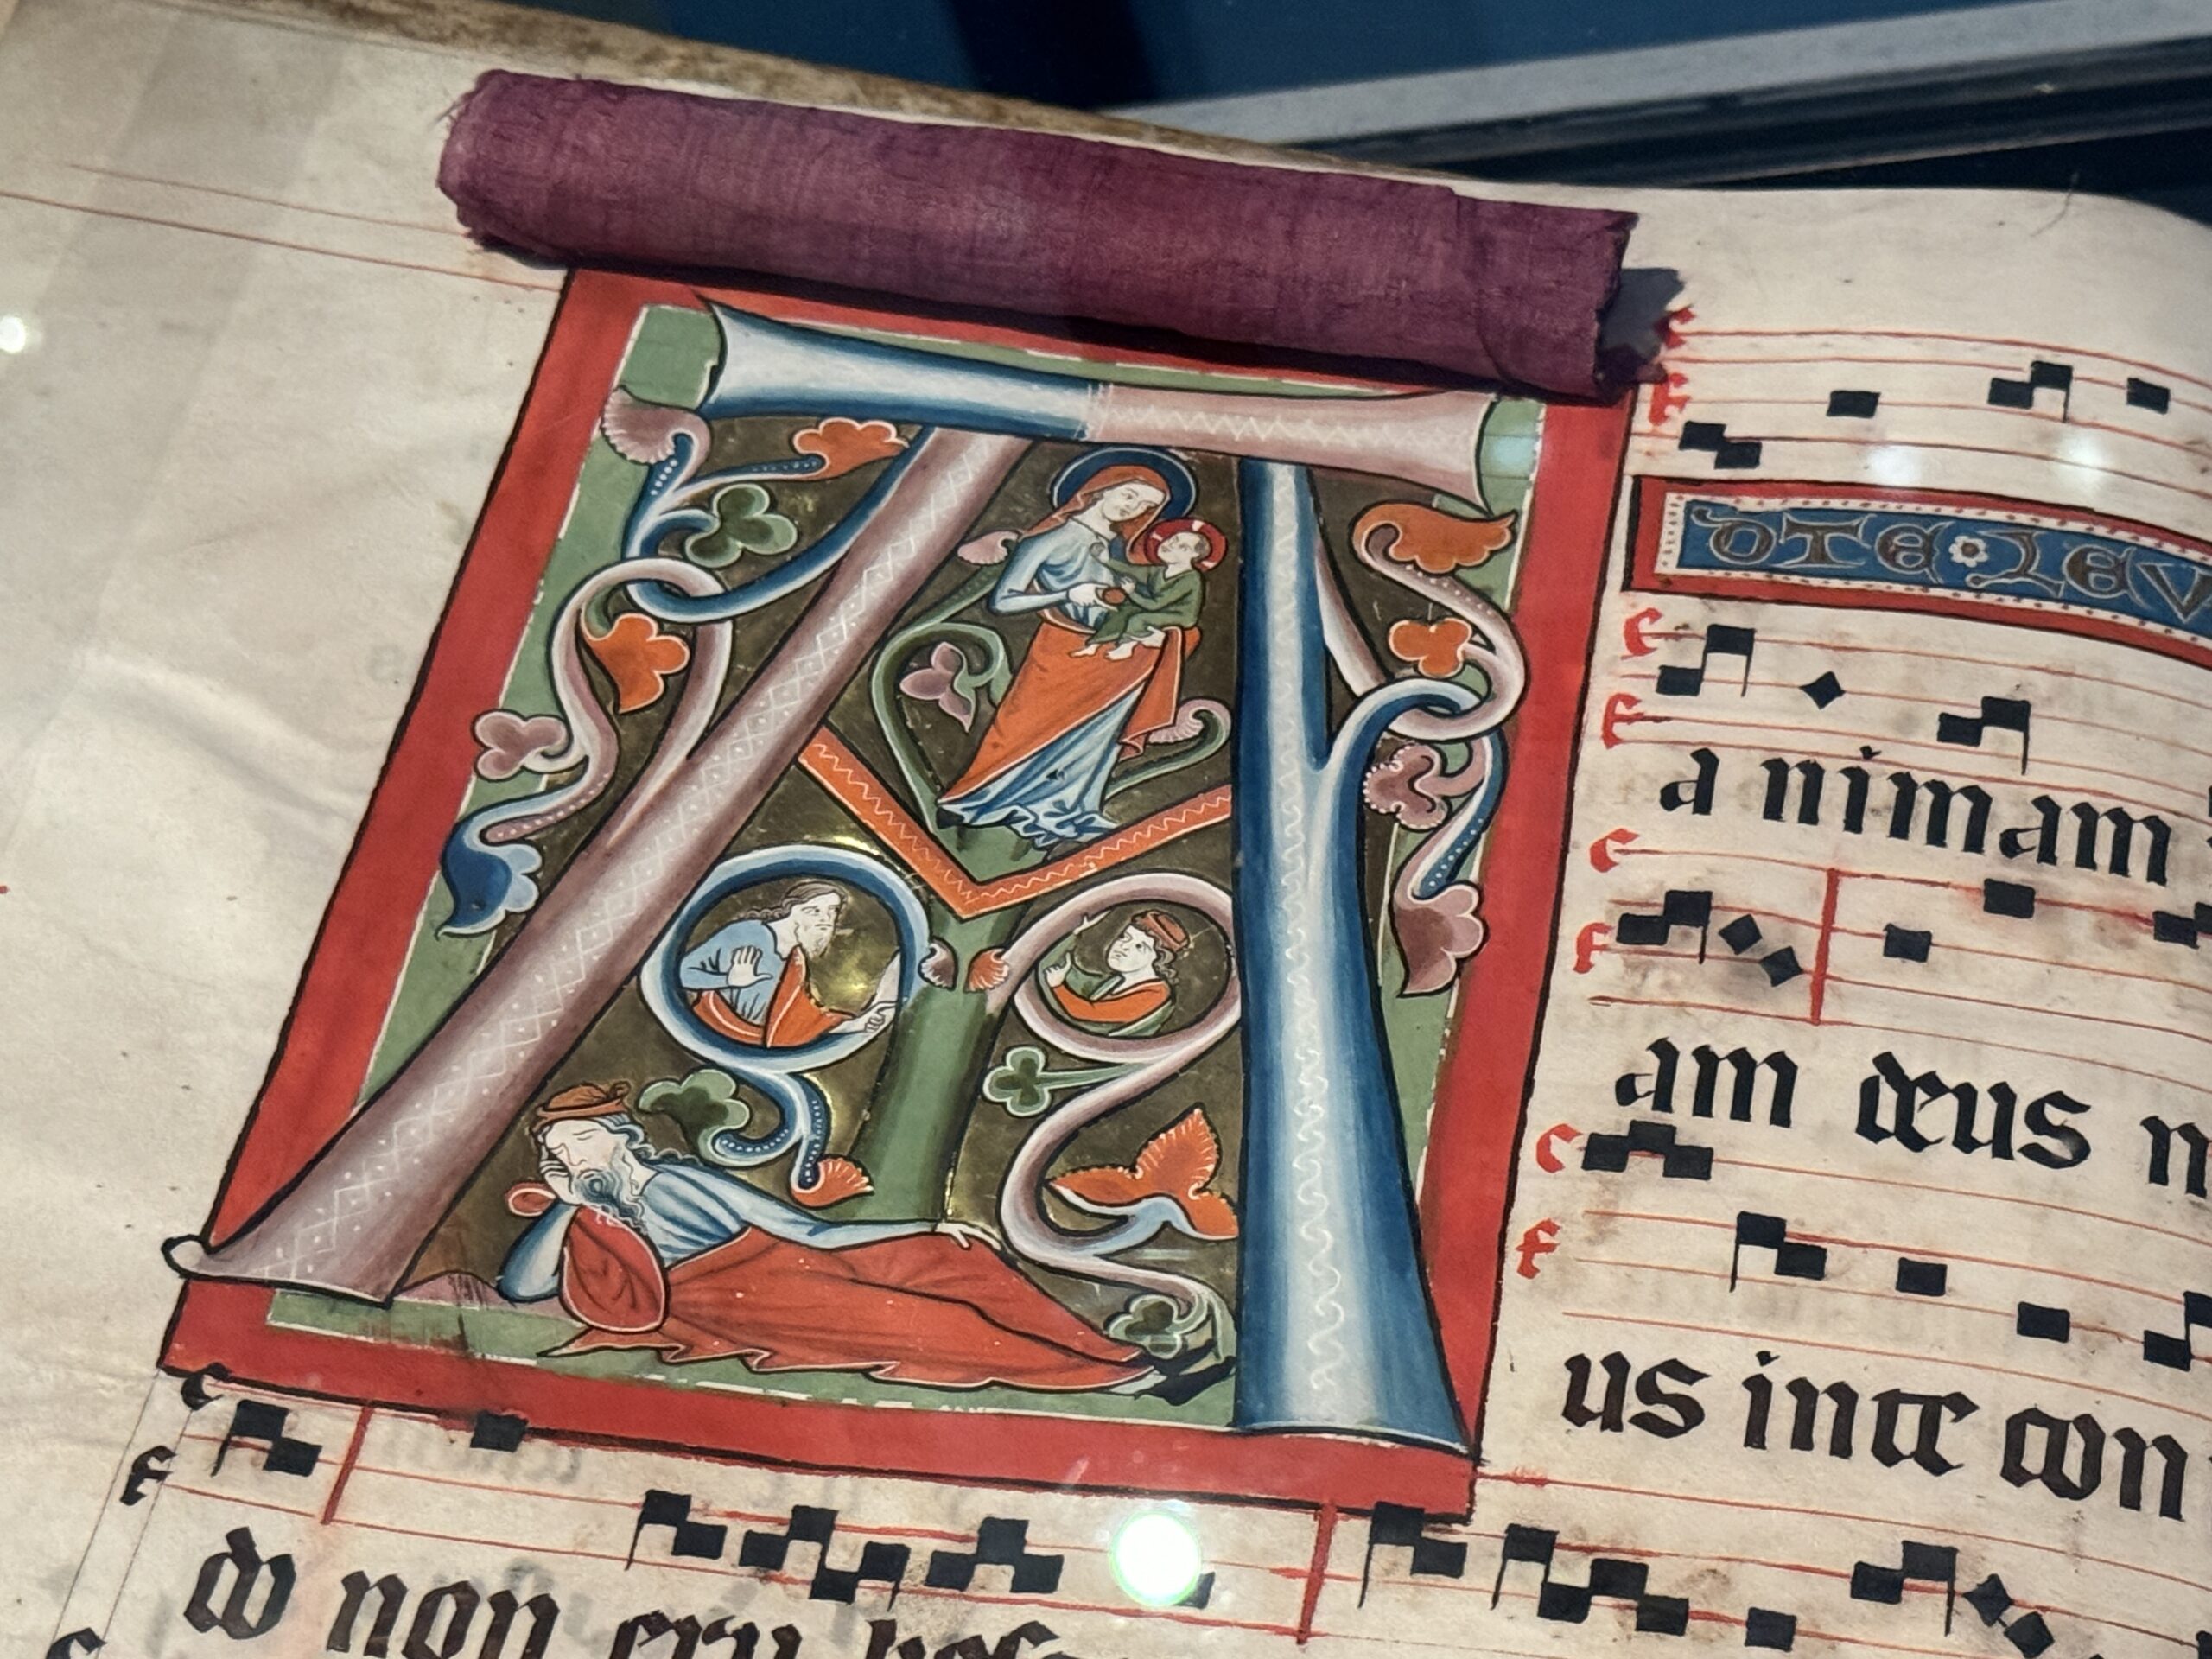 A
DTE LEV
animam
am deus m
us in te con
do non eru besc